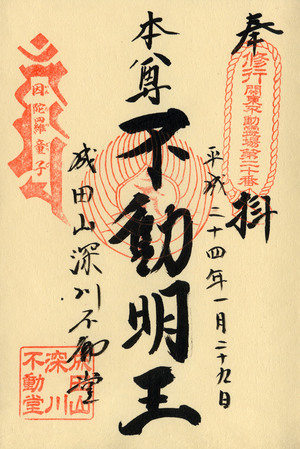 奉掛
修行
関東不動霊場第二十番
平成二十四年一月二十九日
本尊
不動明王
成田山深川不動堂
因陀羅童子
成田山
深川
不動堂